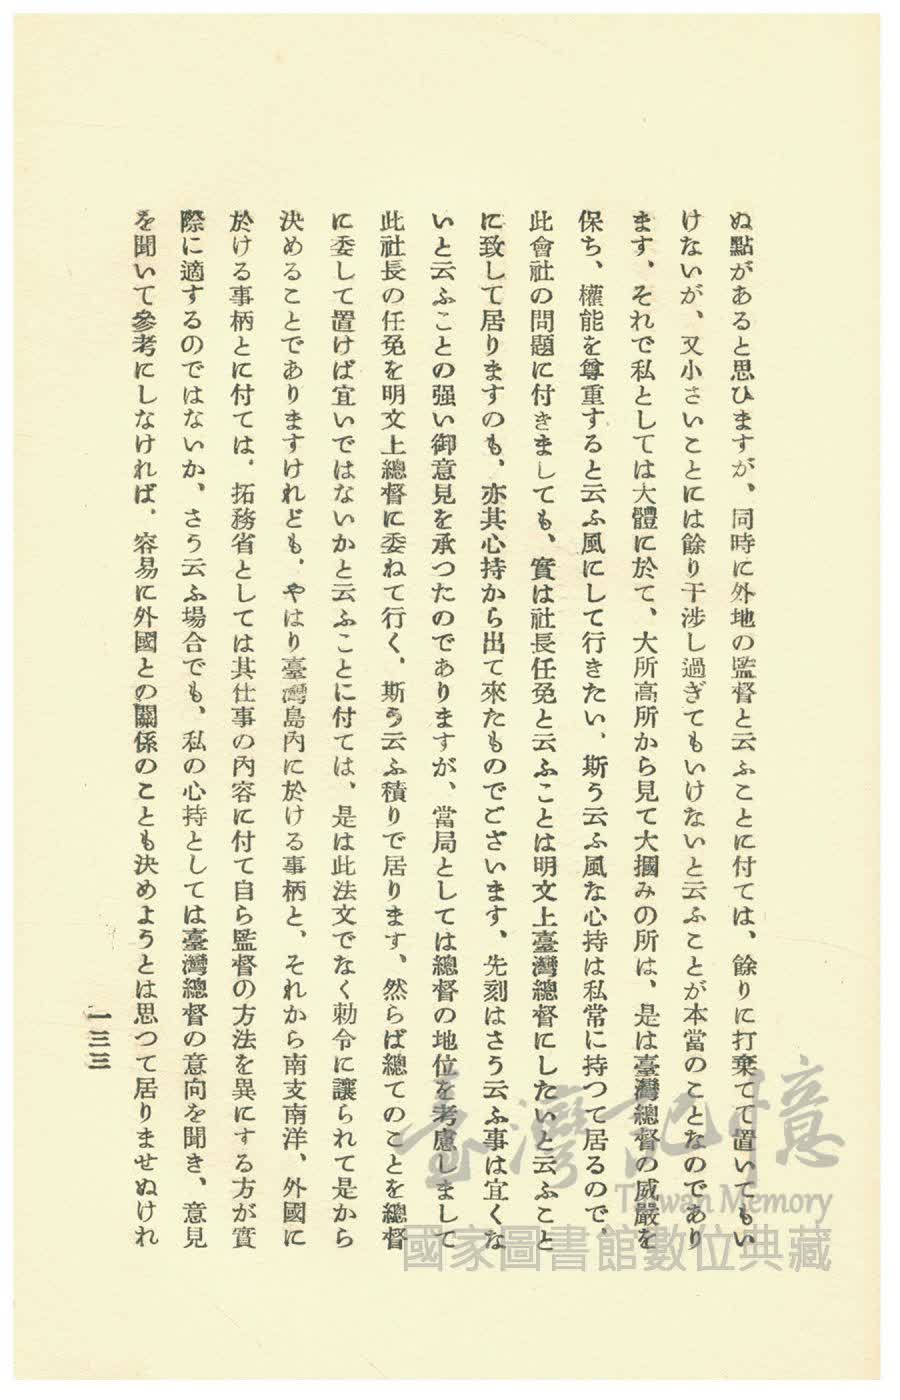 ぬ點があると思ひますが、同時に外地の監督と云ふことに付ては、餘りに打棄てて置いてもい
けないが、又小さいことには餘り干渉し過ぎてもいけないと云ふことが本當のことなのであり
ます、それで私としては大體に於て、大所高所から見て大摑みの所は、是は臺灣總督の威嚴を
保ち、權能を尊重すると云ふ風にして行きたい、斯う云ふ風な心持は私常に持つて居るので、
此會社の問題に付きましても、實は社長任免と云ふことは明文上臺灣總督にしたいと云ふこと
に致して居りますのも、亦其心持から出て來たものでございます、先刻はさう云ふ事は宜くな
いと云ふことの强い御意見を承つたのでありますが、當局としては總督の地位を考慮しまして
此社長の任免を明文上總督に委ねて行く、斯う云ふ積りで居ります、然らば總てのことを總督
に委して置けば宜いではないかと云ふことに付ては、是は此法文でなく勅令に讓られて是から
決めることでありますけれども、やはり臺灣島內に於ける事柄と、それから南支南洋、外國に
於ける事柄とに付ては、拓務省としては其仕事の內容に付て自ら監督の方法を異にする方が實
際に適するのではないか、さう云ふ場合でも、私の心持としては臺灣總督の意向を聞き、意見
を聞いて參考にしなければ、容易に外國との關係のことも決めようとは思つて居りませぬけれ
一三三
臺灣記憶
Taiwan Memory
國家圖書館數位典藏